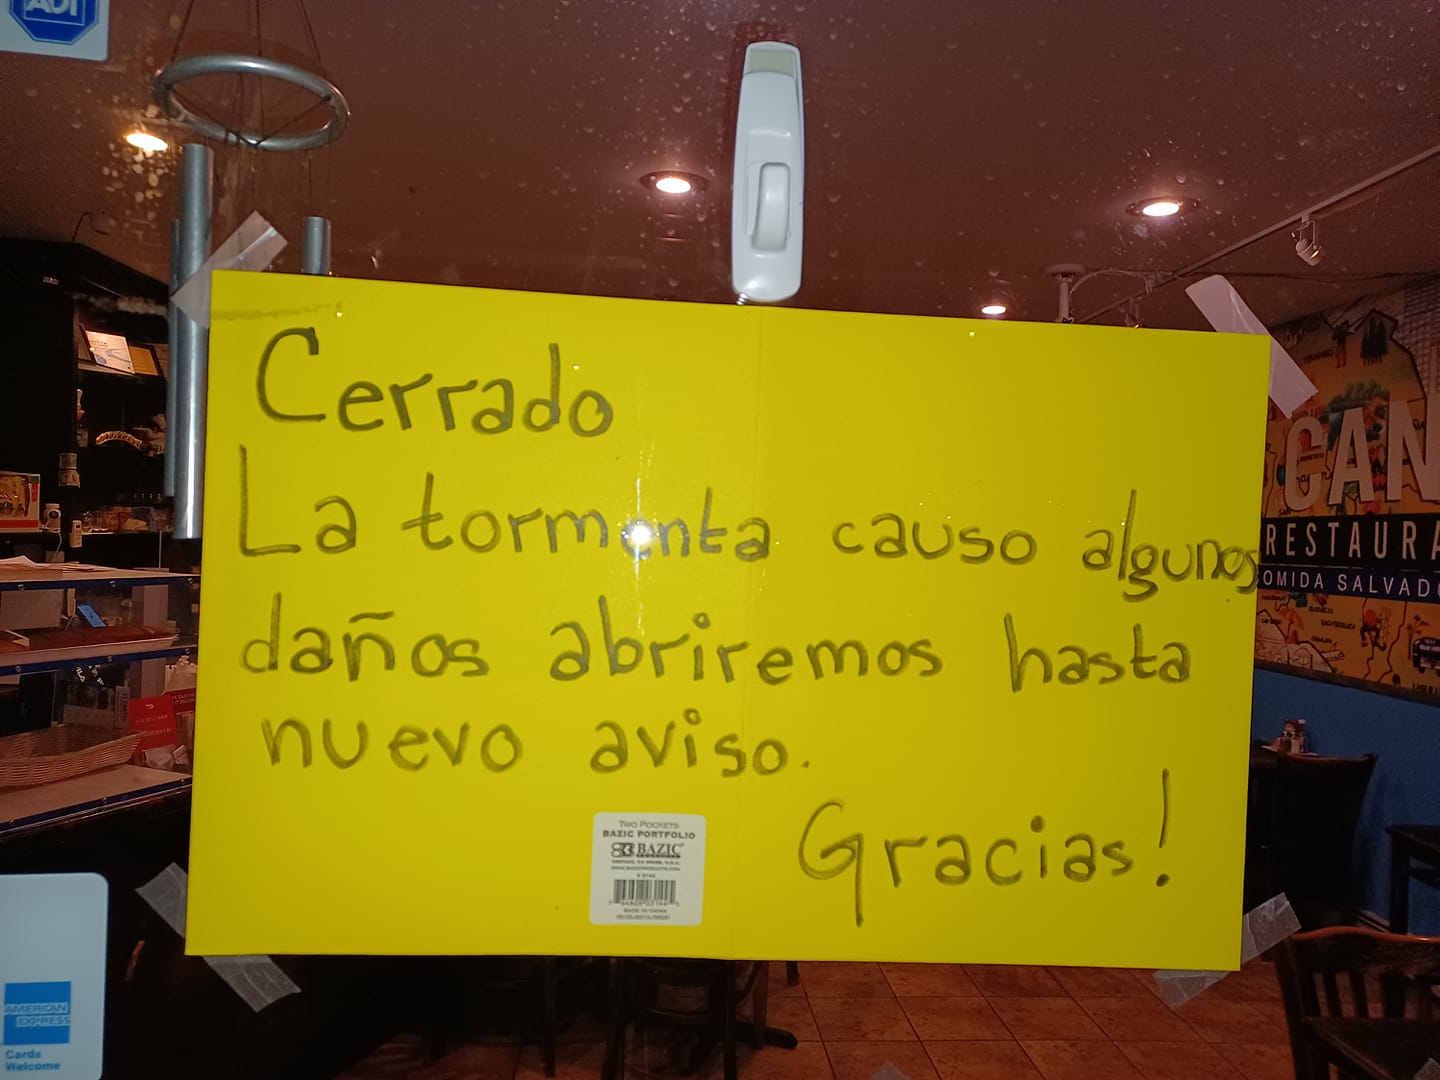 ADT
Cerrado
La tormenta causo algunos
daños abriremos hasta
nuevo aviso.
Gracias!
TWO POCKETS
BAZIC PORTFOLIO
BAZIC
MADE IN CHINA
CAN
RESTAURA
OMIDA SALVADO
AMERICAN
EXPRESS
Cards
Welcome